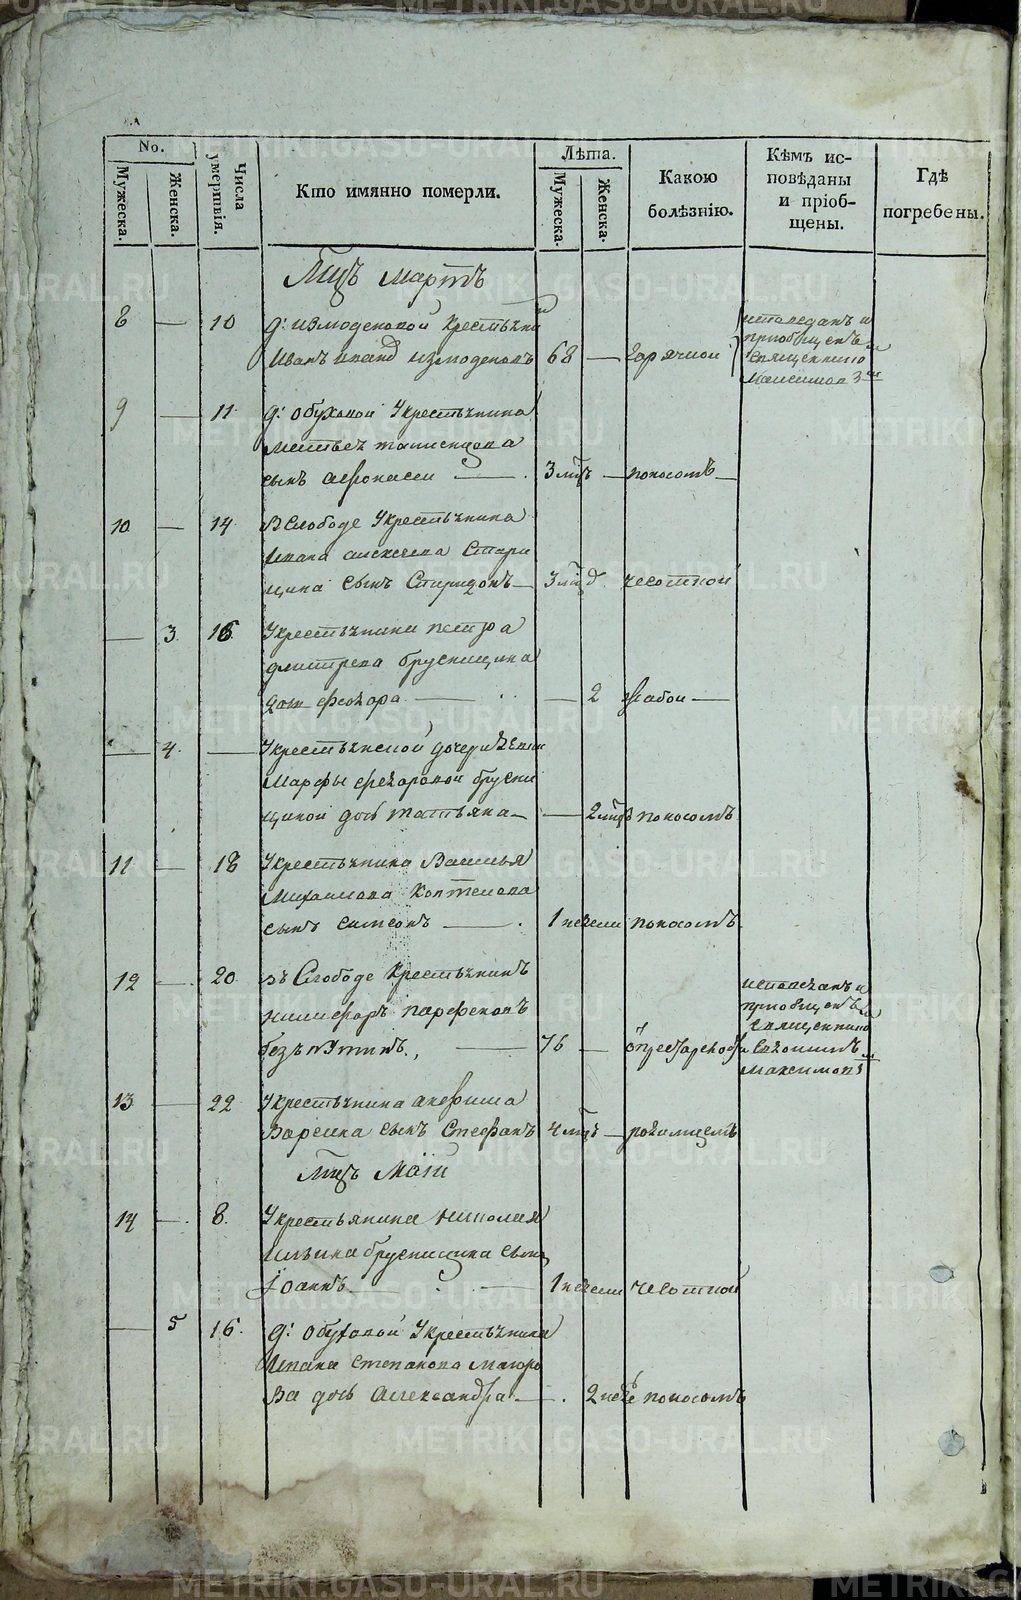 No.
Мужеска.
Женска.
Числа умертвія.
Кто имянно померли.
Лѣта.
Мужеска.
Женска.
Какою болѣзнію.
Кѣмъ ис-
повѣданы
и пріоб-
щены.
Гдѣ
погребены.
Мцъ Мартъ
8 — 10 д: измоденовой крестьянин
Иванъ Измоденовъ 68 — горячкой
исповеданъ и
приобщенъ
священником
Максимов
9 — 11 д: обуховой у крестьянина
сынъ Афонасеи — 3 мцъ — поносомъ —
10 — 14 В слободе у крестьянина
Ивана алексеева Стари
цина сынъ Спиридонъ — 3 мцъ чесоткой
— 3 16 у крестьянина петра
дмитрева брусницина
доч федора — — 2 жабои —
— 4 — у крестьянской дочери
Марфы федоровой брусни
циной дочь татьяна — — 2 мцъ поносомъ
11 — 18 у крестьянина Василья
Михаилова Коптелова
сынъ симеонъ — 1 недели поносомъ
12 — 20 въ Слободе крестьянинъ
никифоръ парфеновъ
безъпутинъ, — 76 — от престарелост
исповеданъ и
приобщенъ
священником
Евфимомъ
Максимов
13 — 22 у крестьянина
сынъ Стефанъ 4 мцъ — родимцемъ
Мцъ Маій
14 — 8. у крестьянина николая
ильина брусницина сынъ
Іоаннъ — 1 недели чесоткой
— 5 16. д: обуховой у крестьянина
Ивана степанова маюро
ва дочь Александра — . 2 неде поносомъ
METRIKI.GASO-URAL.RU